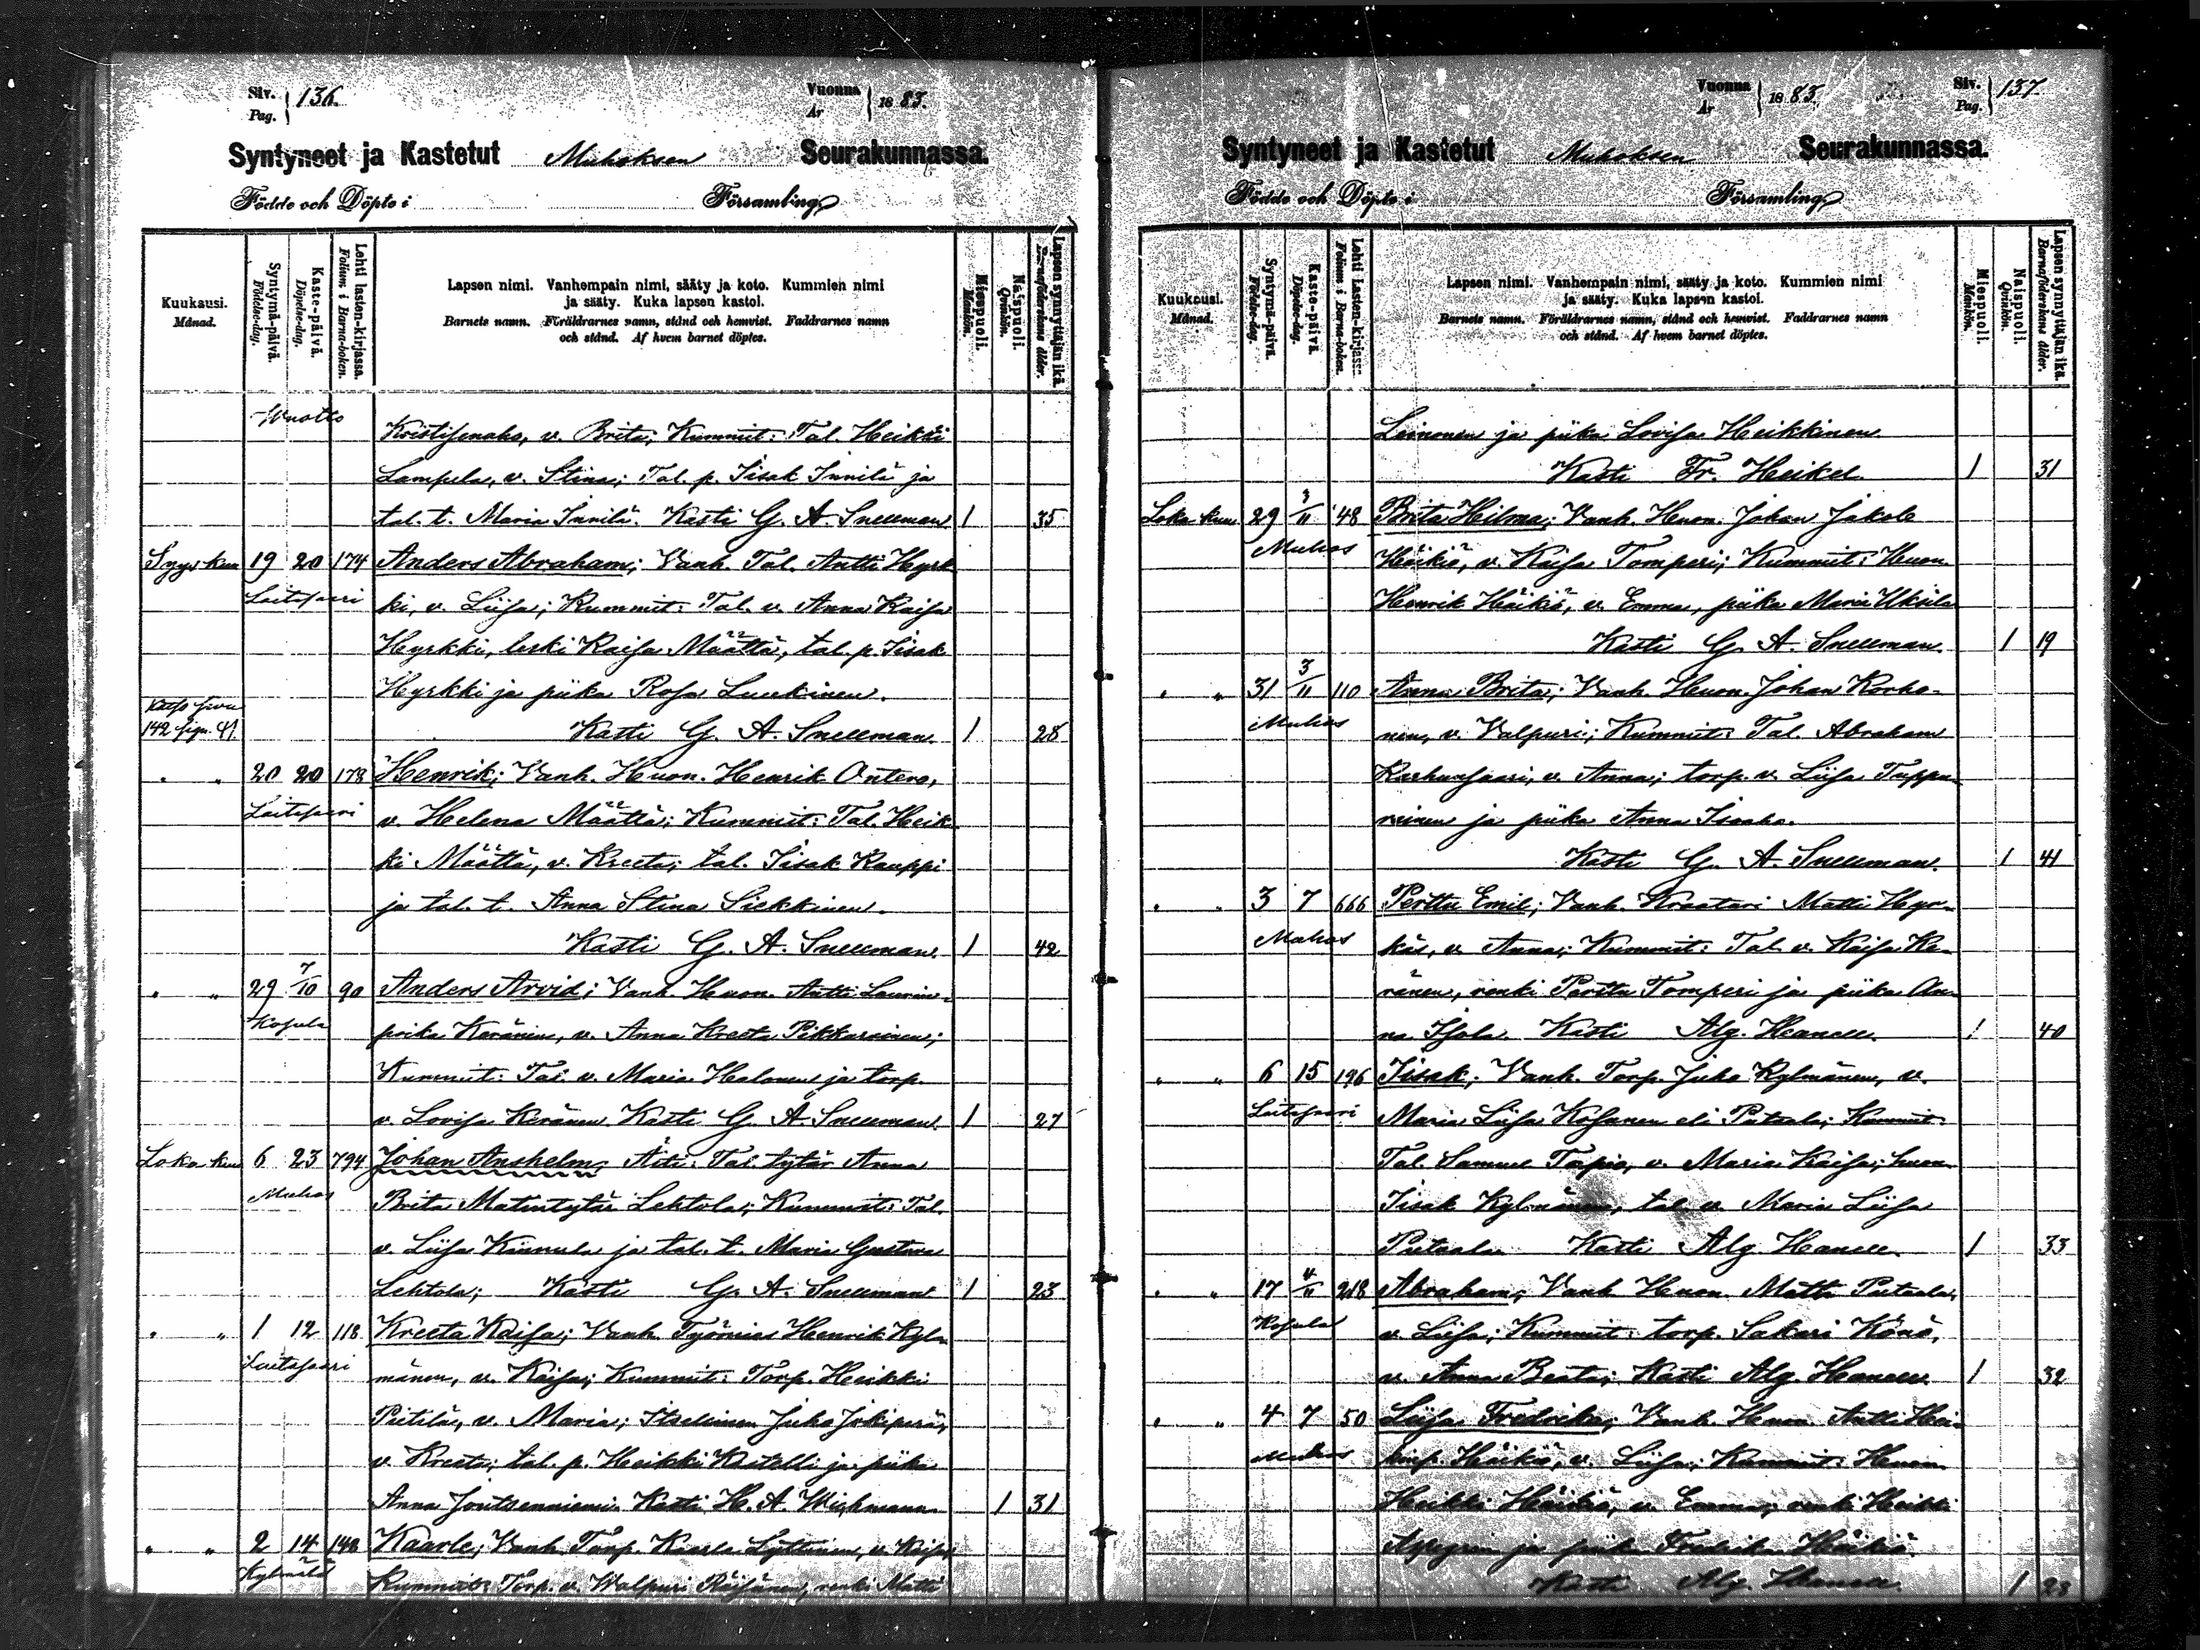 Siv. Pag. 136.
Vuonna År 1883.
Syntyneet ja Kastetut Muhoksen Seurakunnassa.
Födde och Döpte i Församling
Kuukausi. Månad.
Syntymä-päivä. Födelse-dag.
Kaste-päivä. Döpelse-dag.
Lehti lasten-kirjassa. Folium i Barna-boken.
Lapsen nimi. Vanhempain nimi, sääty ja koto. Kummien nimi
ja sääty. Kuka lapsen kastoi.
Barnets namn. Föräldrarnes namn, stånd och hemvist. Faddrarnes namn
och stånd. Af hvem barnet döptes.
Miespuoli. Mankön.
Naispuoli. Qvinkön.
Lapsen synnyttäjän ikä. Barnaföderskans ålder.
Wuotto
Kristisenaho, v. Brita; Kummit: Tal. Heikki
Lampela, v. Stina; Tal. p. Iisak Innilä ja
tal. t. Maria Innilä. Kasti G. A. Snellman 1 35
Syys kuu 19 20 174 Anders Abraham; Vanh. Tal. Antti Hyrk
Laitasaari ki, v. Liisa; Kummit: Tal. v. Anna Kaisa
Hyrkki, leski Kaisa Määttä, tal. p. Iisak
Hyrkki ja piika Rosa Luukinen.
Katso sivu
142 sign. 41. Kasti G. A. Snellman. 1 28
" " 20 20 173 Henrik; Vanh. Huon. Henrik Ontero,
Laitasaari v. Helena Määttä; Kummit: Tal. Heik
ki Määttä, v. Kreeta; tal. Iisak Kauppi
ja tal. t. Anna Stina Siekkinen.
Kasti G. A. Snellman. 1 42
" " 29 7/10 90 Anders Arvid; Vanh. Huon. Antti Laurin
Kosula poika Keränen, v. Anna Kreeta Pikkarainen;
Kummit: Tal. v. Maria Halonen ja torp.
v. Lovisa Keränen Kasti G. A. Snellman. 1 27
Loka kuu 6 23 794 Johan Anshelm; Äiti: Tal. tytär Anna
Muhos Brita Matintytär Lehtola; Kummit: Tal.
v. Liisa Kinnula ja tal. t. Maria Gustava
Lehtola; Kasti G. A. Snellman 1 23
" " 1 12 118 Kreeta Kaisa; Vanh. Työmies Henrik Kyl-
Laitasaari mänen, v. Kaisa; Kummit: Torp. Heikki
Pietilä, v. Maria; Itsellinen Juho Jokiperä,
v. Kreeta; tal. p. Heikki Kestelli ja piika
Anna Joutsenniemi. Kasti H. A. Wichmann. 1 31
" " 2 14 148 Kaarle; Vanh. Torp. Kaarle Lyttinen, v. Kaisa
Kylmälä Kummit: Torp. v. Walpuri Räisänen, renki Matti
Vuonna År 1883.
Siv. Pag. 137.
Syntyneet ja Kastetut Muhoksen Seurakunnassa.
Födde och Döpte i Församling
Kuukausi. Månad.
Syntymä-päivä. Födelse-dag.
Kaste-päivä. Döpelse-dag.
Lehti Lasten-kirjassa. Folium i Barna-boken.
Lapsen nimi. Vanhempain nimi, sääty ja koto. Kummien nimi
ja sääty. Kuka lapsen kastoi.
Barnets namn. Föräldrarnes namn, stånd och hemvist. Faddrarnes namn
och stånd. Af hvem barnet döptes.
Miespuoli. Mankön.
Naispuoli. Qvinkön.
Lapsen synnyttäjän ikä. Barnaföderskans ålder.
Leinonen ja piika Lovisa Heikkinen.
Kasti Fr. Heikel. 1 31
Loka kuu 29 3/11 48 Brita Hilma; Vanh. Huon. Johan Jakob
Muhos Häikiö, v. Kaisa Tomperi; Kummit: Huon.
Henrik Häikiö, v. Emma, piika Maria Uksila
Kasti G. A. Snellman. 1 19
" " 31 3/11 110 Anna Brita; Vanh. Huon. Johan Korho-
Muhos nen, v. Valpuri; Kummit: Tal. Abraham
Karhunsaari, v. Anna; torp. v. Liisa Tappu-
rainen ja piika Anna Isoaho.
Kasti G. A. Snellman. 1 41
" " 3 7 666 Perttu Emil; Vanh. Kraatari Matti Hyr-
Muhos käs, v. Anna; Kummit: Tal. v. Kaisa Ke-
ränen, renki Perttu Tomperi ja piika An-
na Isola. Kasti Alg. Hanell. 1 40
" " 6 15 196 Iisak; Vanh. Torp. Juho Kylmänen, v.
Laitasaari Maria Liisa Kosunen eli Pietala; Kummit:
Tal. Samuel Tapio, v. Maria Kaisa; huon.
Iisak Kylmänen, tal. v. Maria Liisa
Pietala Kasti Alg. Hanell. 1 33
" " 17 4/11 218 Abraham; Vanh. Huon. Matti Pietala,
Kosula v. Liisa; Kummit: torp. Sakari Könö,
v. Anna Beata; Kasti Alg. Hanell. 1 32
" " 4 7 50 Liisa Fredrika; Vanh. Huon. Antti Hei-
Muhos kinp. Häikiö, v. Liisa; Kummit: Huon.
Heikki Häikiö, v. Emma; renki Heikki
ja piika Fredrika Häikiö.
Kasti Alg. Hanell. 1 23